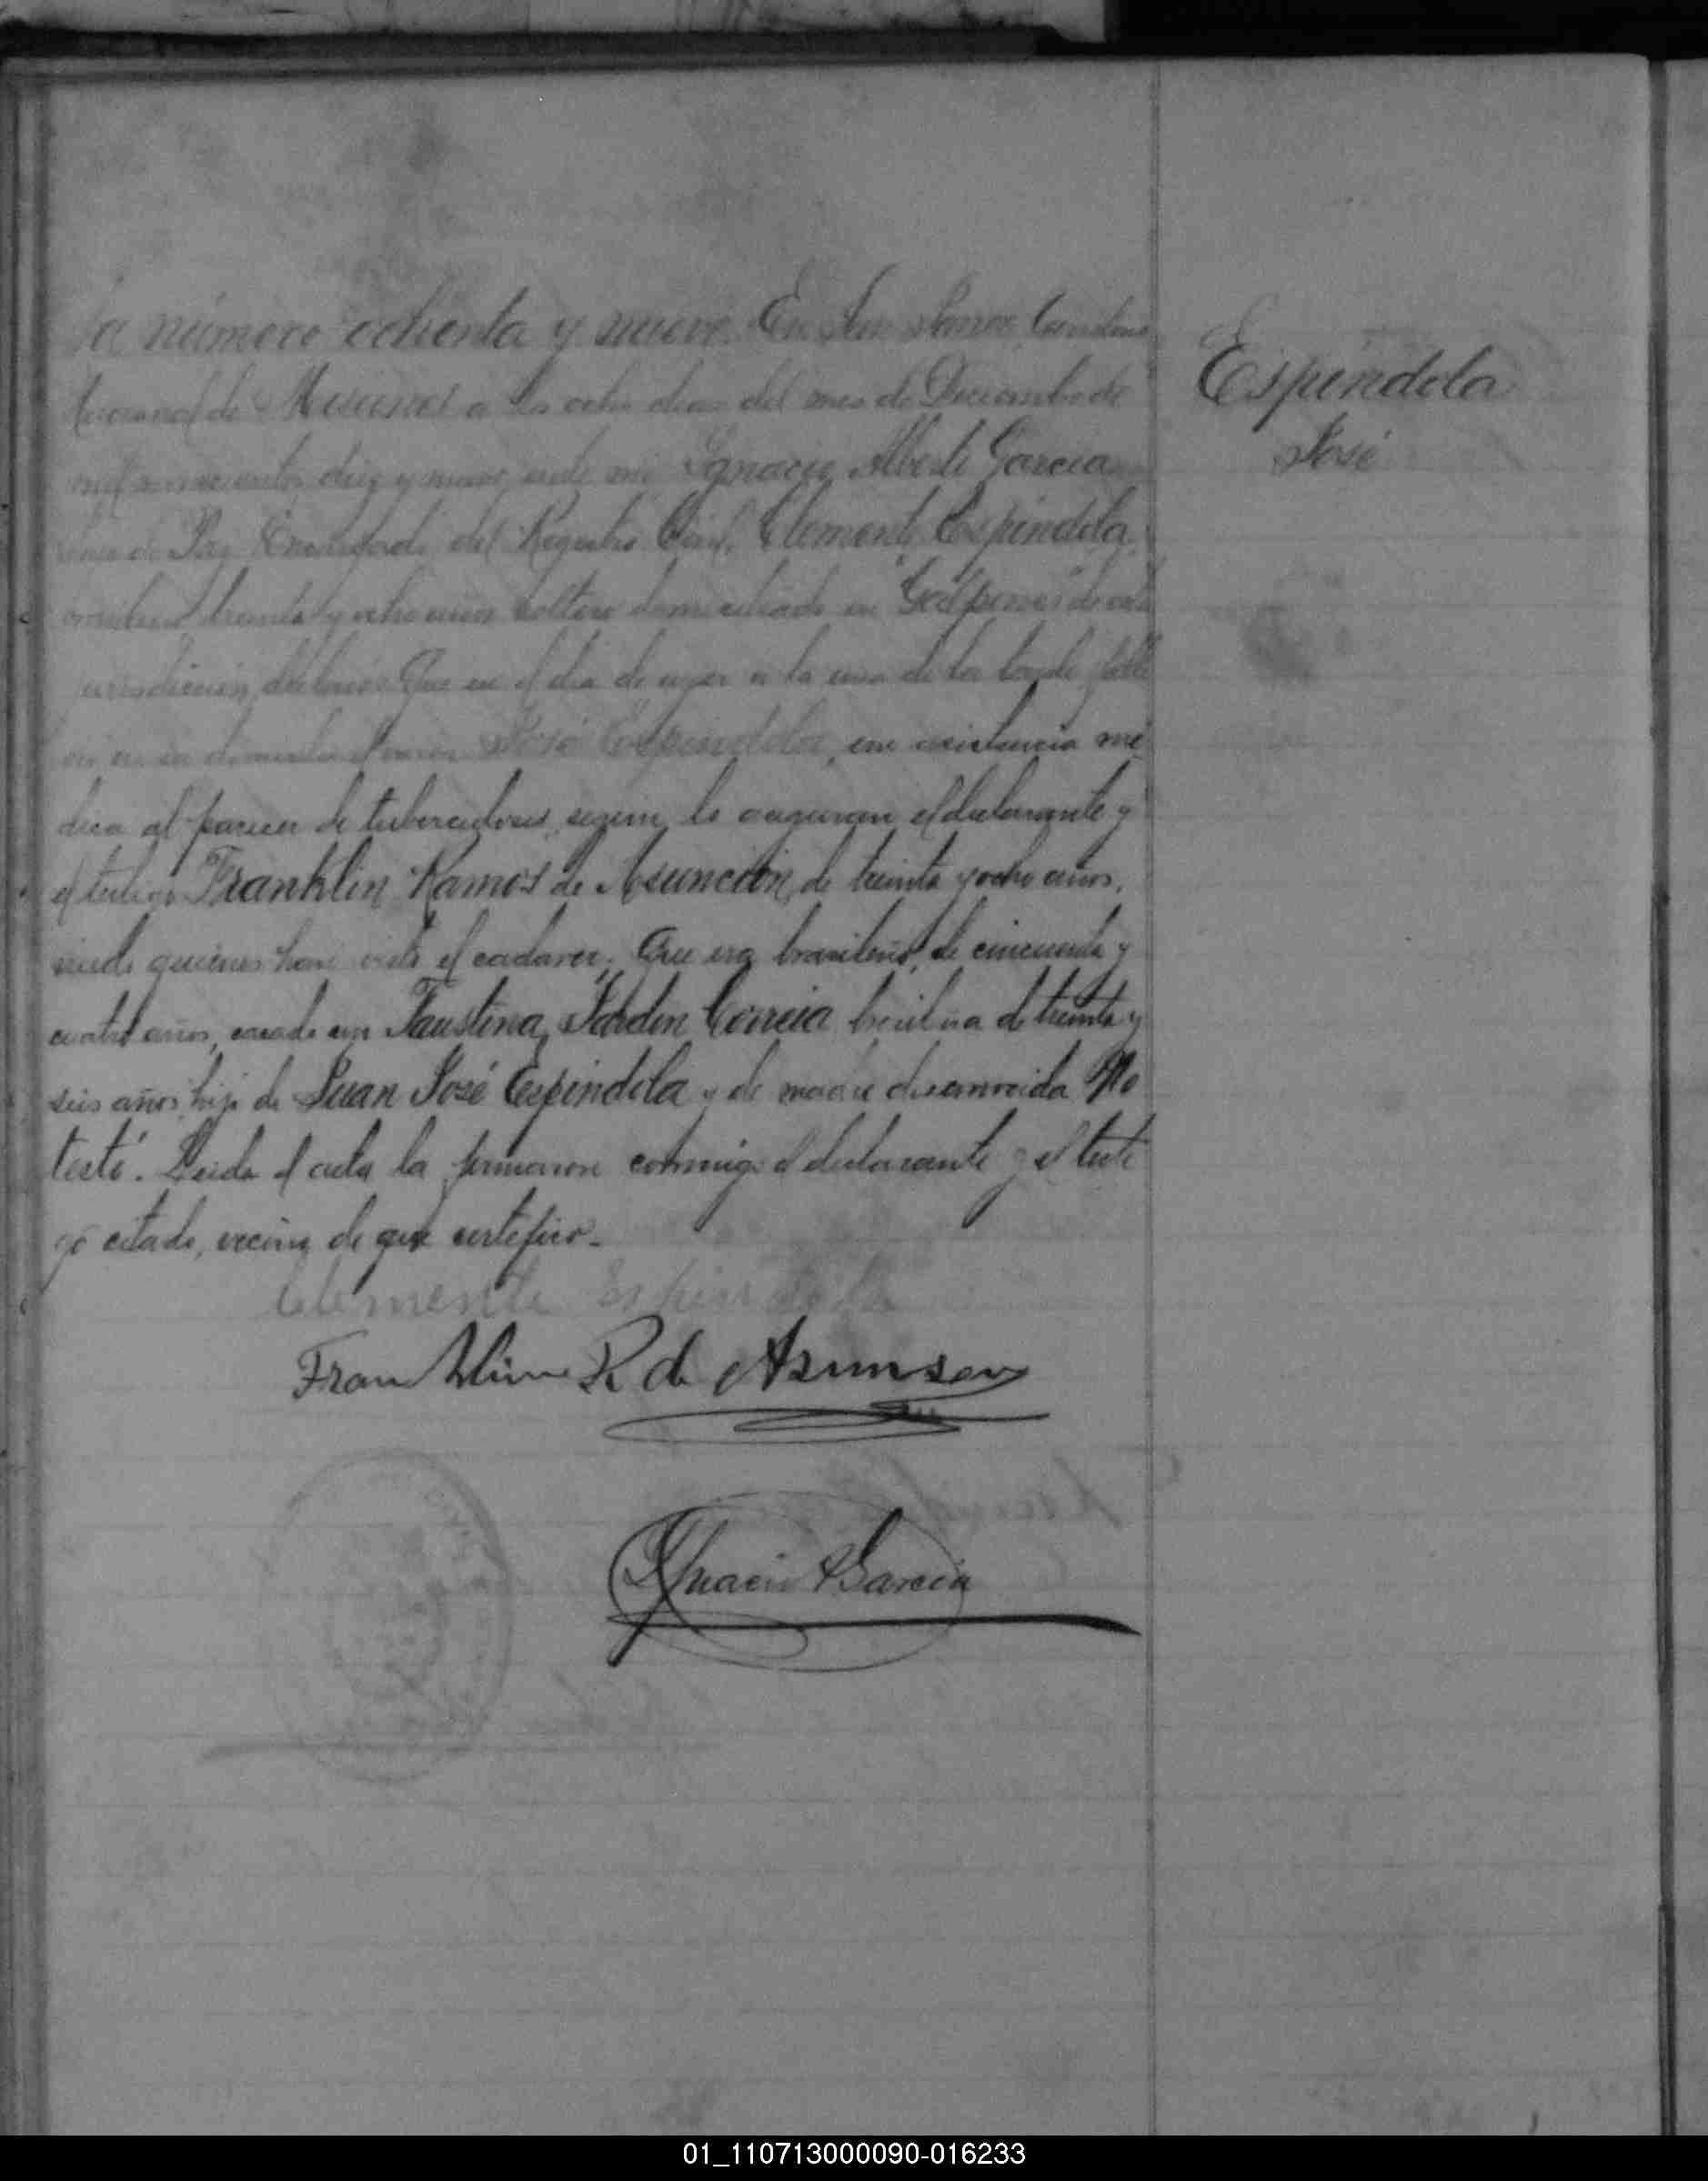 número ochenta y nueve. En San Javier, Territorio
Nacional de Misiones a los ocho dias del mes de Diciembre de
mil novecientos diez y nueve ante mi Ignacio Alberto Garcia
Juez de Paz Encargado del Registro Civil, Clemente Espindola
treinta y ocho años soltero domiciliado en "Galpones" de esta
jurisdicción, declaró: Que en el dia de ayer a la una de la tarde falle
ció en su domicilio José Espindola, sin asistencia mé
dica al parecer de tuberculosis, segun lo aseguran el declarante y
el testigo Franklin Ramos de Asunción, de treinta y ocho años,
quienes han visto el cadaver. Que era brasileño, de cincuenta y
cuatro años, casado con Faustina Correia brasileña de treinta y
seis años, hijo de Juan José Espindola y de madre desconocida No
testó. Leida el acta la firmaron conmigo el declarante y el testi
go citado, vecino de que certifico.
Clemente Espindola
Franklin R de Asunson
Ignacio A Garcia
Espindola
José
01_110713000090-016233